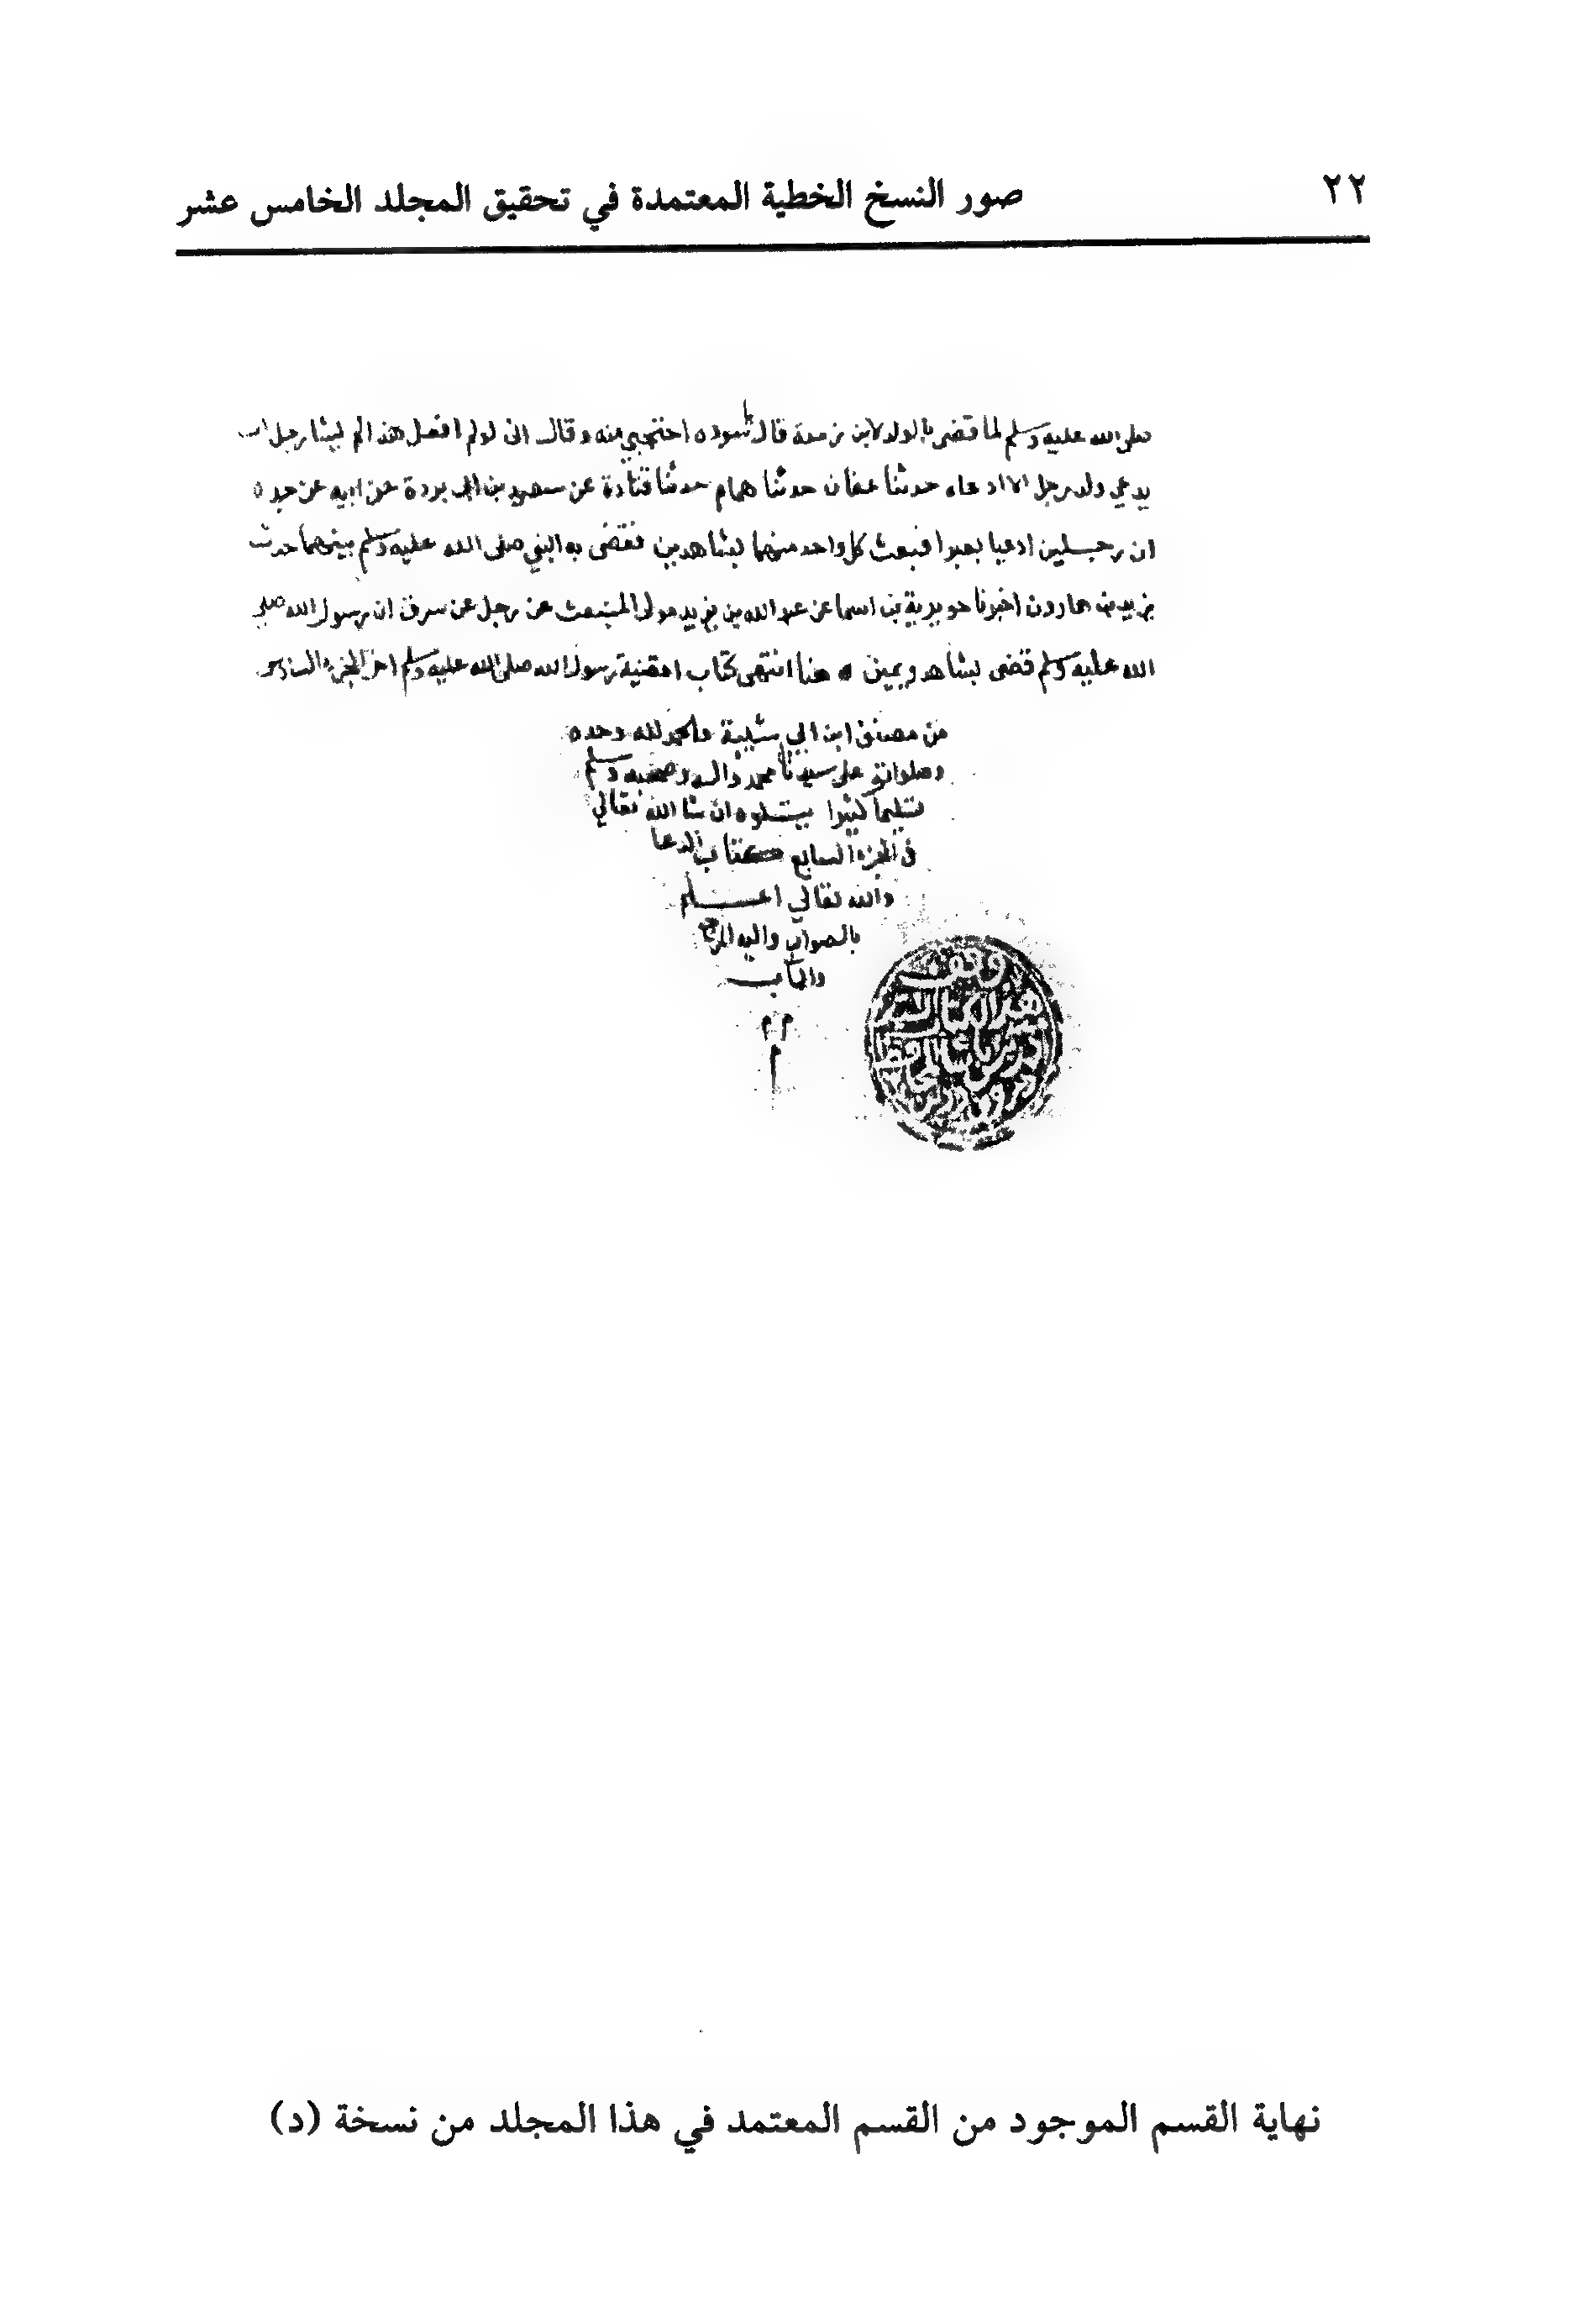 ٢٢ صور النسخ الخطية المعتمدة في تحقيق المجلد الخامس عشر
صلى الله عليه وسلم لما قضى بالولد لابن زمعة قال لسوده احتجبي منه وقال انى لو لم افعل هذا لم يشا رجل ان
يدعي ولد رجل الا ادعاه حدثنا عفان حدثنا همام حدثنا قتادة عن سعيد بن ابى بردة عن ابيه عن جده
ان رجلين ادعيا بعيرا فبعث كل واحد منهما بشاهدين فقضى به النبي صلى الله عليه وسلم بينهما حدثنا
يزيد بن هارون اخبرنا جويرية بن اسما عن عبد الله بن يزيد مولى المنبعث عن رجل عن سرق ان رسول الله صلى
الله عليه وسلم قضى بشاهد ويمين ه هنا انتهى كتاب اقضية رسول الله صلى الله عليه وسلم اخر الجزء السادس
من مصنف ابن ابي شيبة والحمد لله وحده
وصلواته على سيدنا محمد واله وصحبه وسلم
تسليما كثيرا يتلوه ان شا الله تعالي
فى الجزء السابع كتاب الدعا
والله تعالي اعلم
بالصواب واليه المرجع
والمآب
م م
م
وقف
هذا الكتاب
نهاية القسم الموجود من القسم المعتمد في هذا المجلد من نسخة (د)